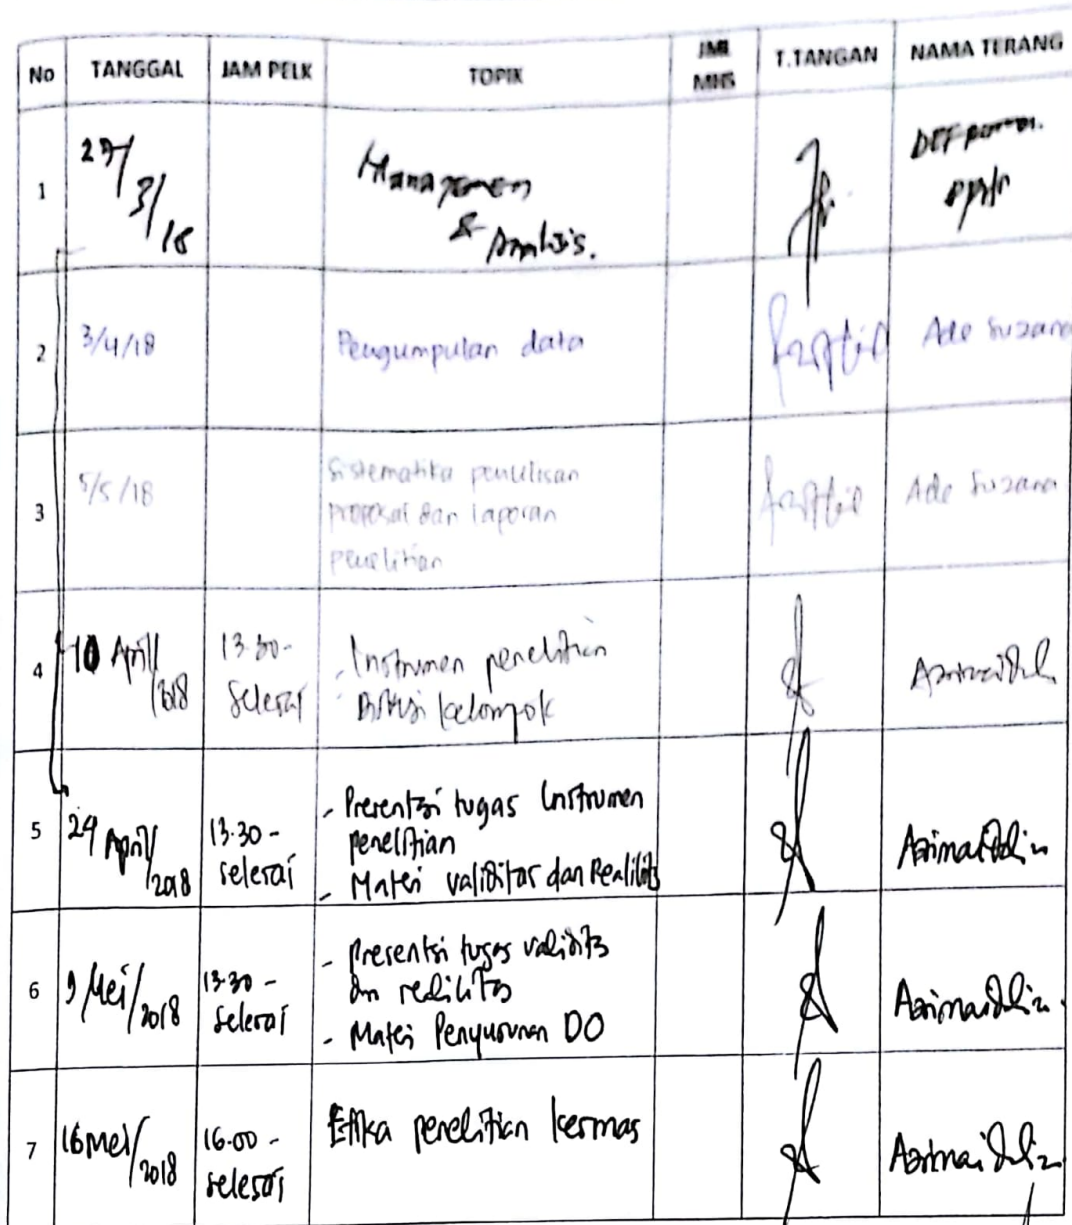 No TANGGAL JAM PELK TOPIK JML MHS T.TANGAN NAMA TERANG
1 27/3/18 Managemen
& Analisis.
2 3/4/18 Pengumpulan data Ade Suzana
3 5/5/18 Sistematika penulisan
proposal dan laporan
penelitian Ade Suzana
4 10 April/2018 13.30-
selesai - Instrumen penelitian
- Diskusi kelompok Azimaiddin
5 24 April/2018 13.30 -
selesai - Presentasi tugas Instrumen
penelitian
- Materi validitas dan Realilits Azimaiddin
6 9 Mei/2018 13.30 -
selesai - Presentsi tugas validits
dn realilitas
- Materi Penyusunan DO Azimaiddin
7 16 Mei/2018 16.00 -
selesai Etika penelitian kesmas Azimaiddin